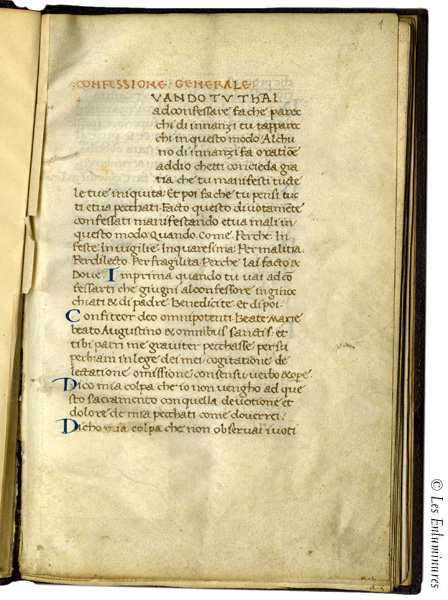 1
CONFESSIONE GENERALE
VANDO TV THAI
ad confessare fa che parec
chi dinnanzi tu tapparec
chi in questo modo. Alchu
no di innanzi fa oratione
addio chetti concieda gra
tia che tu manifesti tucte
le tue iniquita. et poi fa che tu pensi tuc
ti etua pecchati. Facto questo divotamente
confessati manifestando etua mali in
questo modo. quando. Come. Perche. In
feste. In vigilie. In quaresima. Per malitia.
Per dilecto. Per fragilita. Perche lai facto &
Dove. Imprima quando tu vai ad co
fessarti che giugni al confessore inginoc
chiati & di padre. Benedicite et di poi.
Confiteor deo omnipotenti. Beate Marie
beato Augustino & omnibus sanctis. et
tibi patri me graviter pecchasse per su
perbiam in lege dei mei. cogitatione de
lectatione omissione consensu verbo & ope.
Dico mia colpa che io non vengho ad que
sto sacramento con quella devotione et
dolore de mia pecchati come doverrei.
Dicho mia colpa che non observai i voti
© Les Enluminures